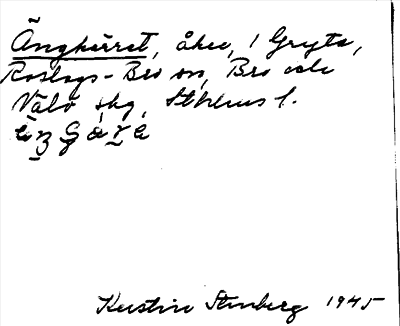 Ängkärret, åker, i Gryta,
Roslags-Bro sn, Bro och
Vätö skg, Sthlms l.
Kerstin Stenberg 1945